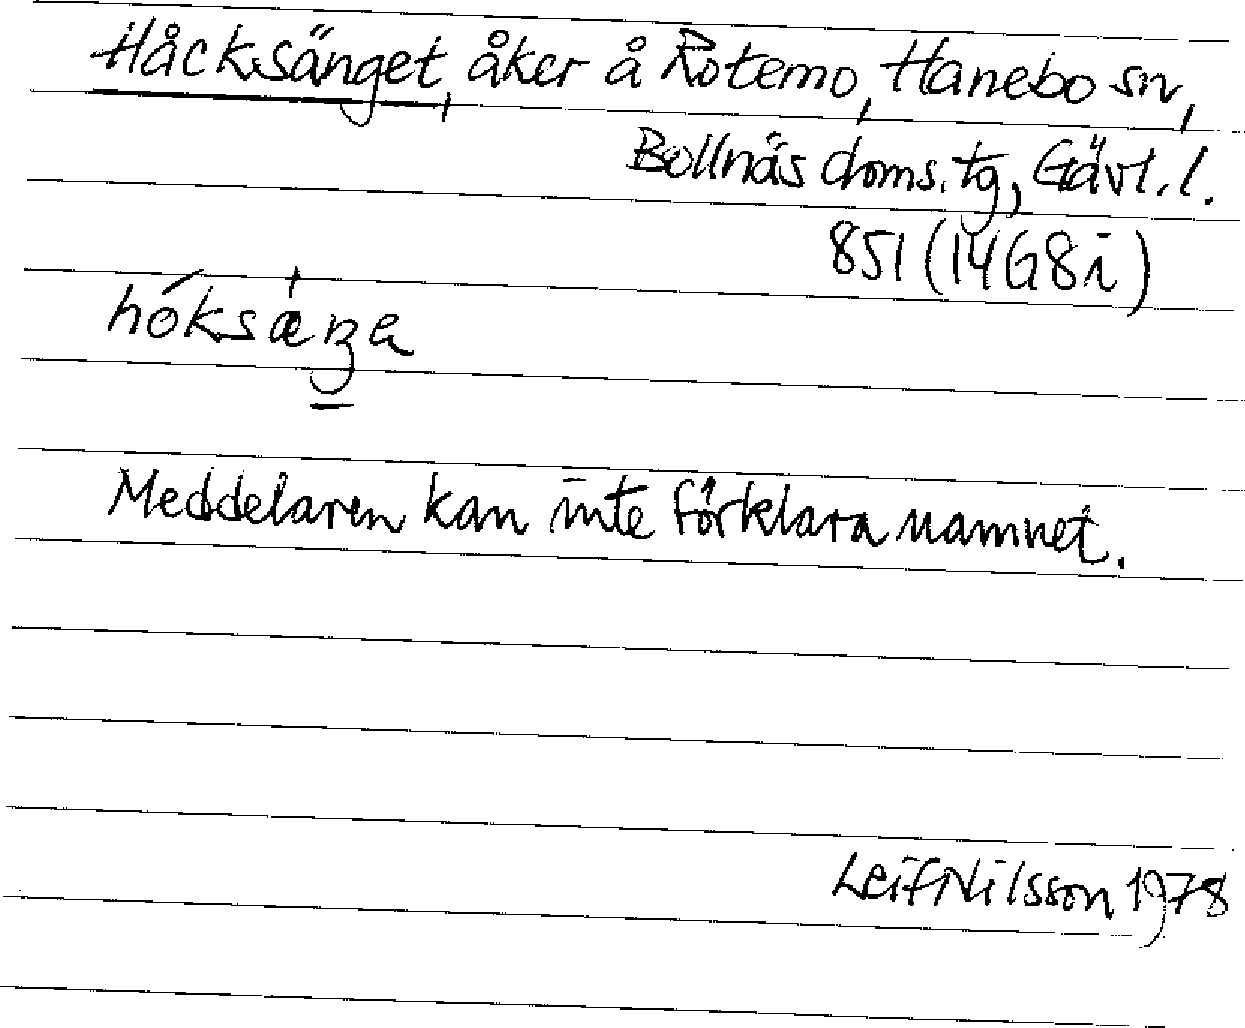 Håcksänget, åker å Rotemo, Hanebo sn,
Bollnäs doms.tg, Gävl.l.
851 (14G8i)
hóksæŋa
Meddelaren kan inte förklara namnet.
Leif Nilsson 1978